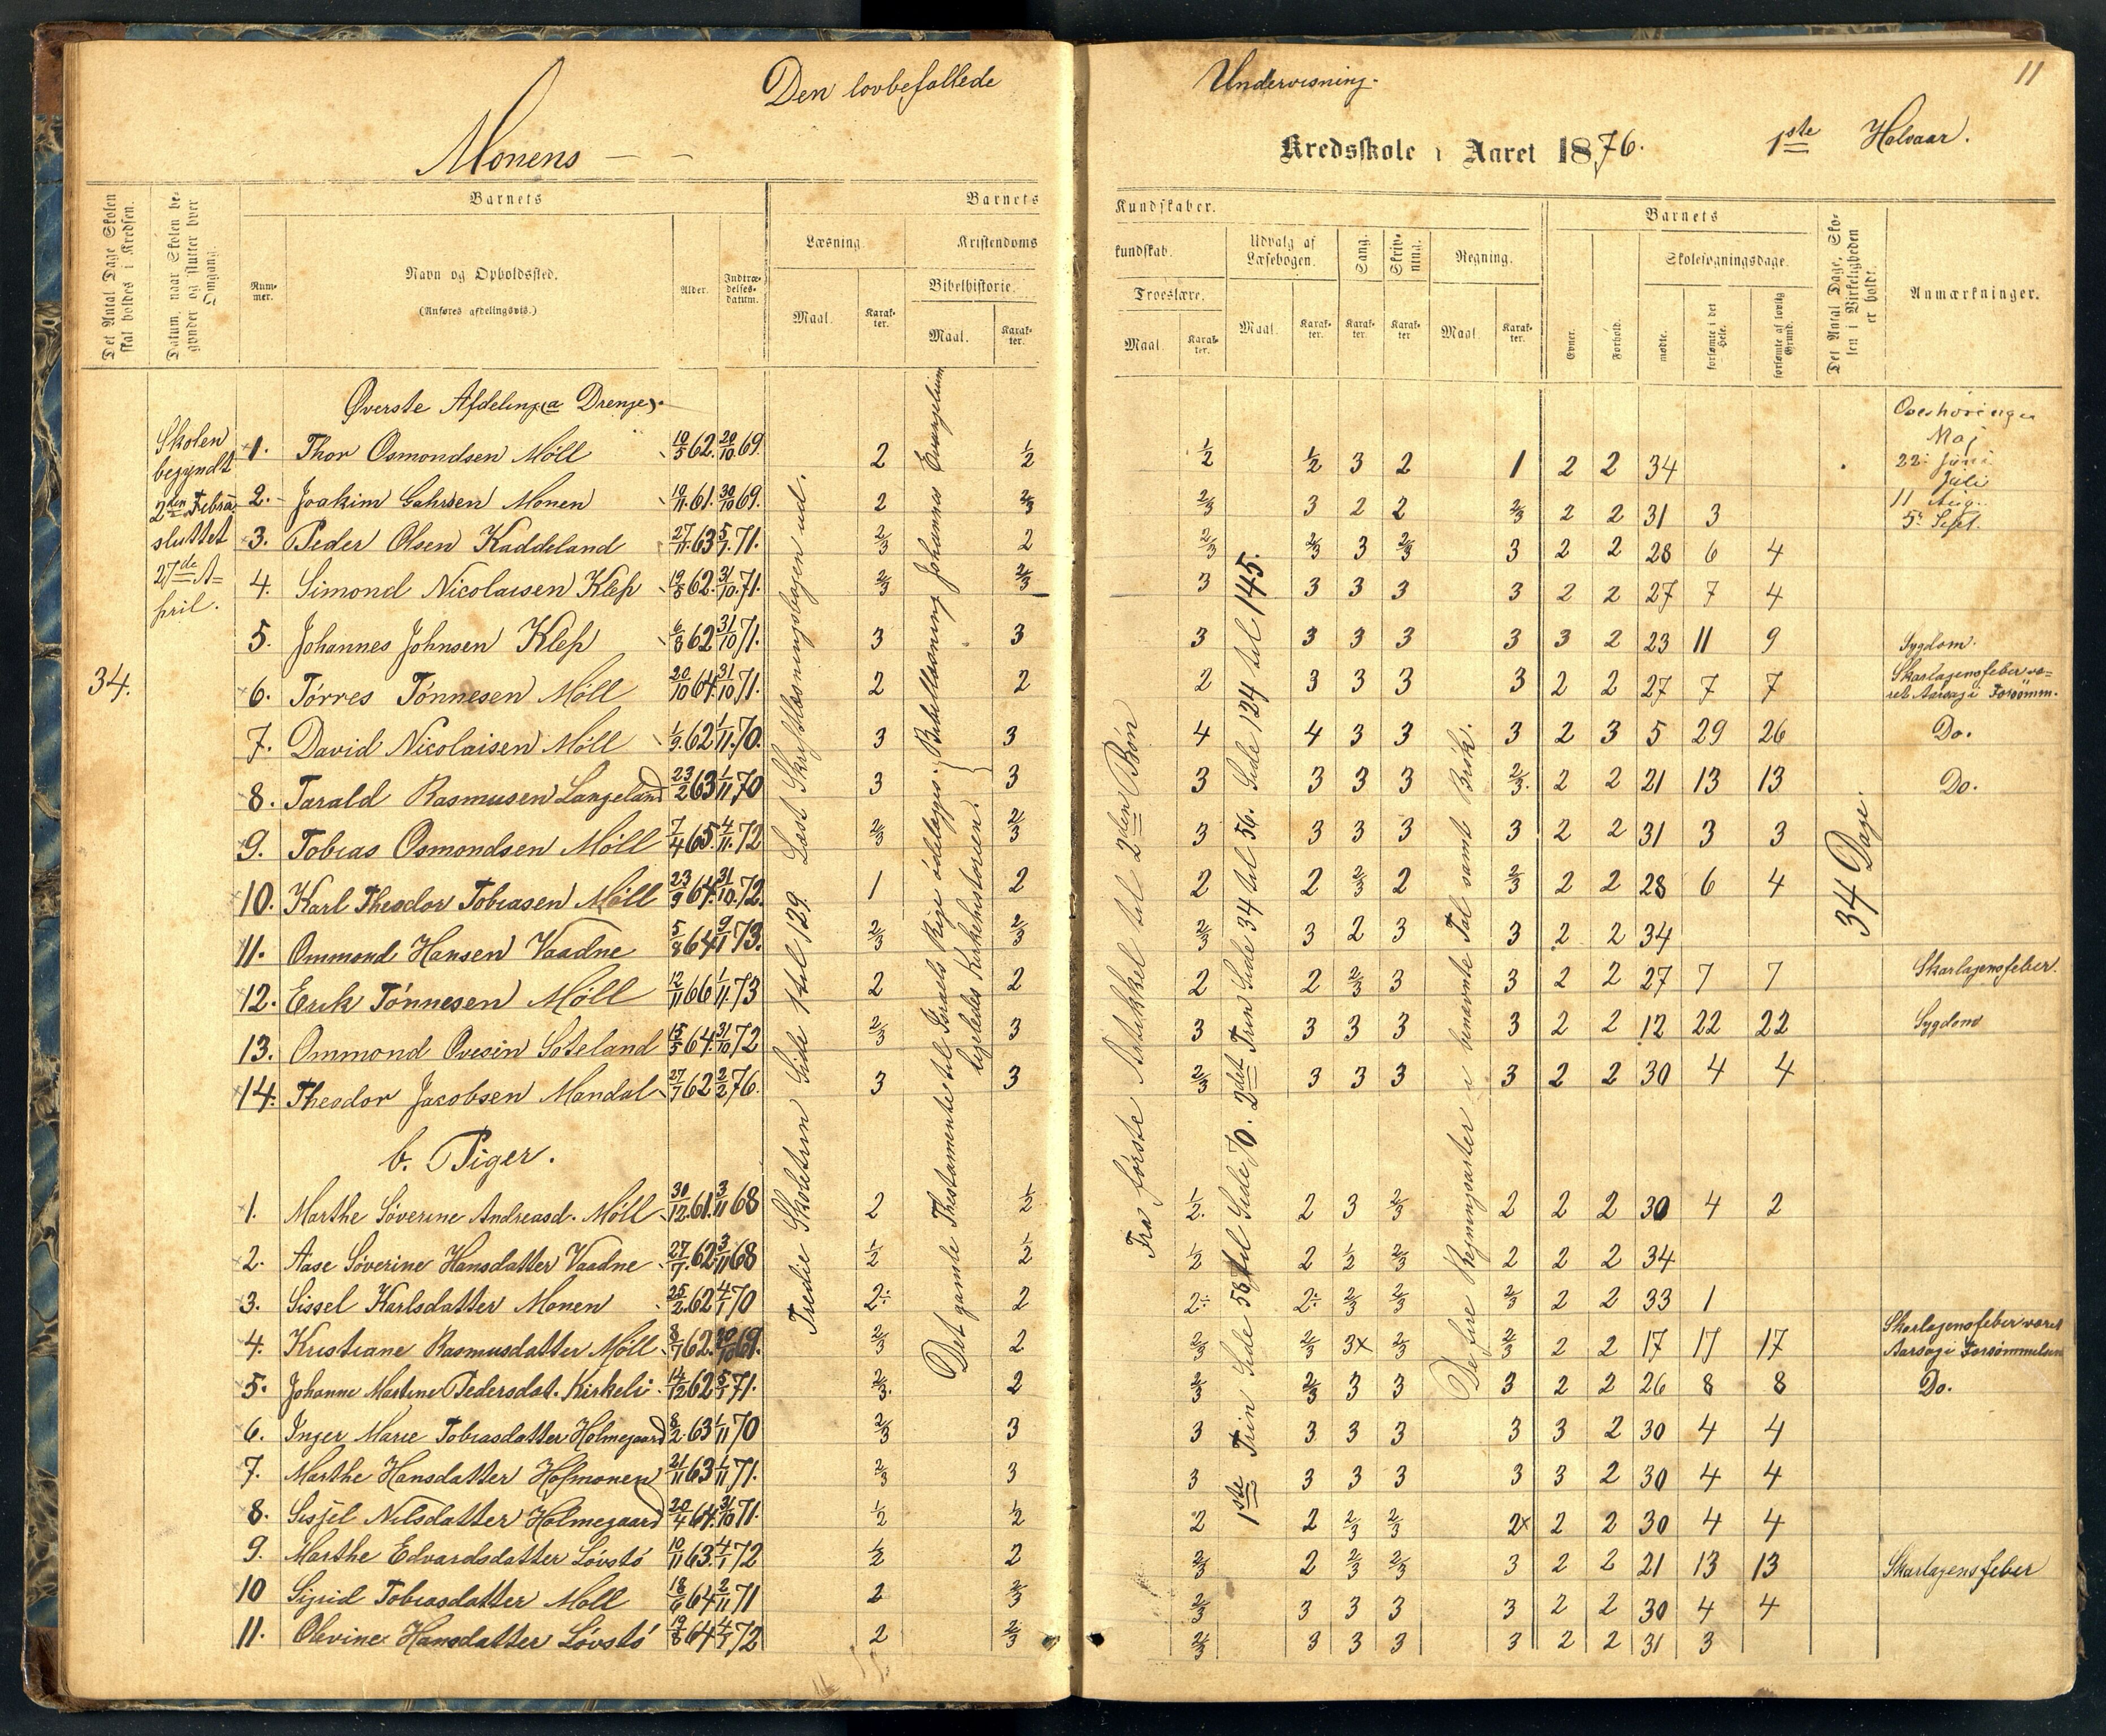 Den lovbefallede Undervisning.
11
Monens Kredsskole i Aaret 1876. 1ste Halvaar.
Det Antal Dage Skolen skal holdes i Kredsen.
Datum, naar Skolen begynder og slutter hver Omgang.
Barnets
Nummer.
Navn og Opholdssted.
(Anføres afdelingsvis.)
Alder.
Indtrædelsesdatum.
Barnets Kundskaber.
Læsning.
Maal.
Karakter.
Kristendomskundskab.
Bibelhistorie.
Maal.
Karakter.
Troeslære.
Maal.
Karakter.
Udvalg af Læsebogen.
Maal.
Karakter.
Sang.
Karakter.
Skrivning.
Karakter
Regning.
Maal.
Karakter.
Barnets
Evner.
Forhold.
Skolesøgningsdage.
mødte.
forsømte i det Hele.
forsømte af lovlig Grund.
Det Antal Dage, Skolen i Virkeligheden er holdt.
Anmærkninger.
Skolen
begyndt
2den Febru
sluttet
27de A-
pril.
34.
Øverste Afdeling (a Drenge).
1. Thor Osmondsen Möll 10/5 62. 20/10 69. 2 1/2 1/2 1/2 3 2 1 2 2 34
2. Joakim Gahrsen Monen 10/11 61. 30/10 69. 2 2/3 2/3 3 2 2 2/3 2 2 31 3
3. Peder Olsen Kaddeland 27/11 63 5/1 71. 2/3 2 2/3 2/3 3 2/3 3 2 2 28 6 4
4. Simond Nicolaisen Klep 19/8 62. 31/10 71. 2/3 2/3 3 3 3 3 3 2 2 27 7 4
5. Johannes Johnsen Klep 6/8 62 31/10 71. 3 3 3 3 3 3 3 3 2 23 11 9 Sygdom.
6. Törres Tönnesen Möll 20/10 64. 31/10 71. 2 2 2 3 3 3 3 2 2 27 7 7 Skarlagensfeber været Aarsag i Forsömm.
7. David Nicolaisen Möll 1/9 62 1/11 70. 3 3 4 4 3 3 3 2 3 5 29 26 Do.
8. Tarald Rasmusen Langeland 23/2 63 1/11 70 3 3 3 3 3 3 2/3 2 2 21 13 13 Do.
9. Tobias Osmondsen Möll 7/4 65. 4/11 72 2/3 2/3 3 3 3 3 3 2 2 31 3 3
10. Karl Theodor Tobiasen Möll 23/9 64. 31/10 72. 1 2 2 2 2/3 2 2/3 2 2 28 6 4
11. Ommond Hansen Vaadne 5/8 64 9/1 73. 2/3 2/3 2/3 3 2 3 3 2 2 34
12. Erik Tönnesen Möll 12/11 66 1/11 73 2 2 2 2 2/3 3 3 2 2 27 7 7 Skarlagensfeber.
13. Ommond Ovesen Söteland 15/5 64. 31/10 72 2/3 3 3 3 3 3 3 2 2 12 22 22 Sygdom
14. Theodor Jacobsen Mandal 27/7 62 2/2 76. 3 3 2/3 3 3 3 3 2 2 30 4 4
b. Piger.
1. Marthe Söverine Andreasd. Möll 30/12 61. 3/11 68 2 1/2 1/2 2 3 2/3 2 2 2 30 4 2
2. Aase Söverine Hansdatter Vaadne 27/7 62 3/11 68 1/2 1/2 1/2 2 1/2 2/3 2 2 2 34
3. Sissel Karlsdatter Monen 25/2 62 4/1 70 2÷ 2 2÷ 2÷ 2/3 2/3 2/3 2 2 33 1
4. Kristiane Rasmusdatter Möll 8/7 62. 30/10 69. 2/3 2 2/3 2/3 3x 2/3 2/3 2 2 17 17 17 Skarlagensfeber været Aarsag i Forsömmelsen
5. Johanne Martine Pedersdat. Kirkeli 14/12 62 5/1 71. 2/3 2 2/3 2/3 3 3 3 2 2 26 8 8 Do.
6. Inger Marie Tobiasdatter Holmegaard 8/2 63 1/11 70 2/3 3 3 3 3 3 3 3 2 30 4 4
7. Marthe Hansdatter Hofmonen 21/11 63 1/11 71. 2/3 3 3 3 3 3 3 3 2 30 4 4
8. Sissel Nilsdatter Holmegaard 20/4 64. 31/10 71. 1/2 1/2 2 2 2/3 2/3 2x 2 2 30 4 4
9. Marthe Edvardsdatter Lövstö 10/11 63. 4/1 72 1/2 2 2/3 2 2/3 2/3 3 2 2 21 13 13 Skarlagensfeber
10 Sigrid Tobiasdatter Möll 18/6 64 2/11 71 2 2/3 2/3 3 3 3 3 2 2 30 4 4
11. Olevine Hansdatter Lövstö 19/8 64 4/1 72 2 2/3 2/3 3 3 3 3 2 2 31 3
Tredie Skoletrin Side 1 til 129. Læst Skriftlæsningsbogen ud.
Det gamle Thestamente til Israels Rige ödelægges. Beke
ligeledes Kirkehistorien.
Johannes Evangelium
Fra förste Artikkel til 2den Bön
1ste Trin Side 55 til Side 70. 2det Trin Side 34 til 56. Side 124 til 145.
De fire Regningsarter i benævnte Tal samt Brök.
34 Dage.
Overhöringer
Maj
22: Juni
Juli
11 Aug.
5: Sept.